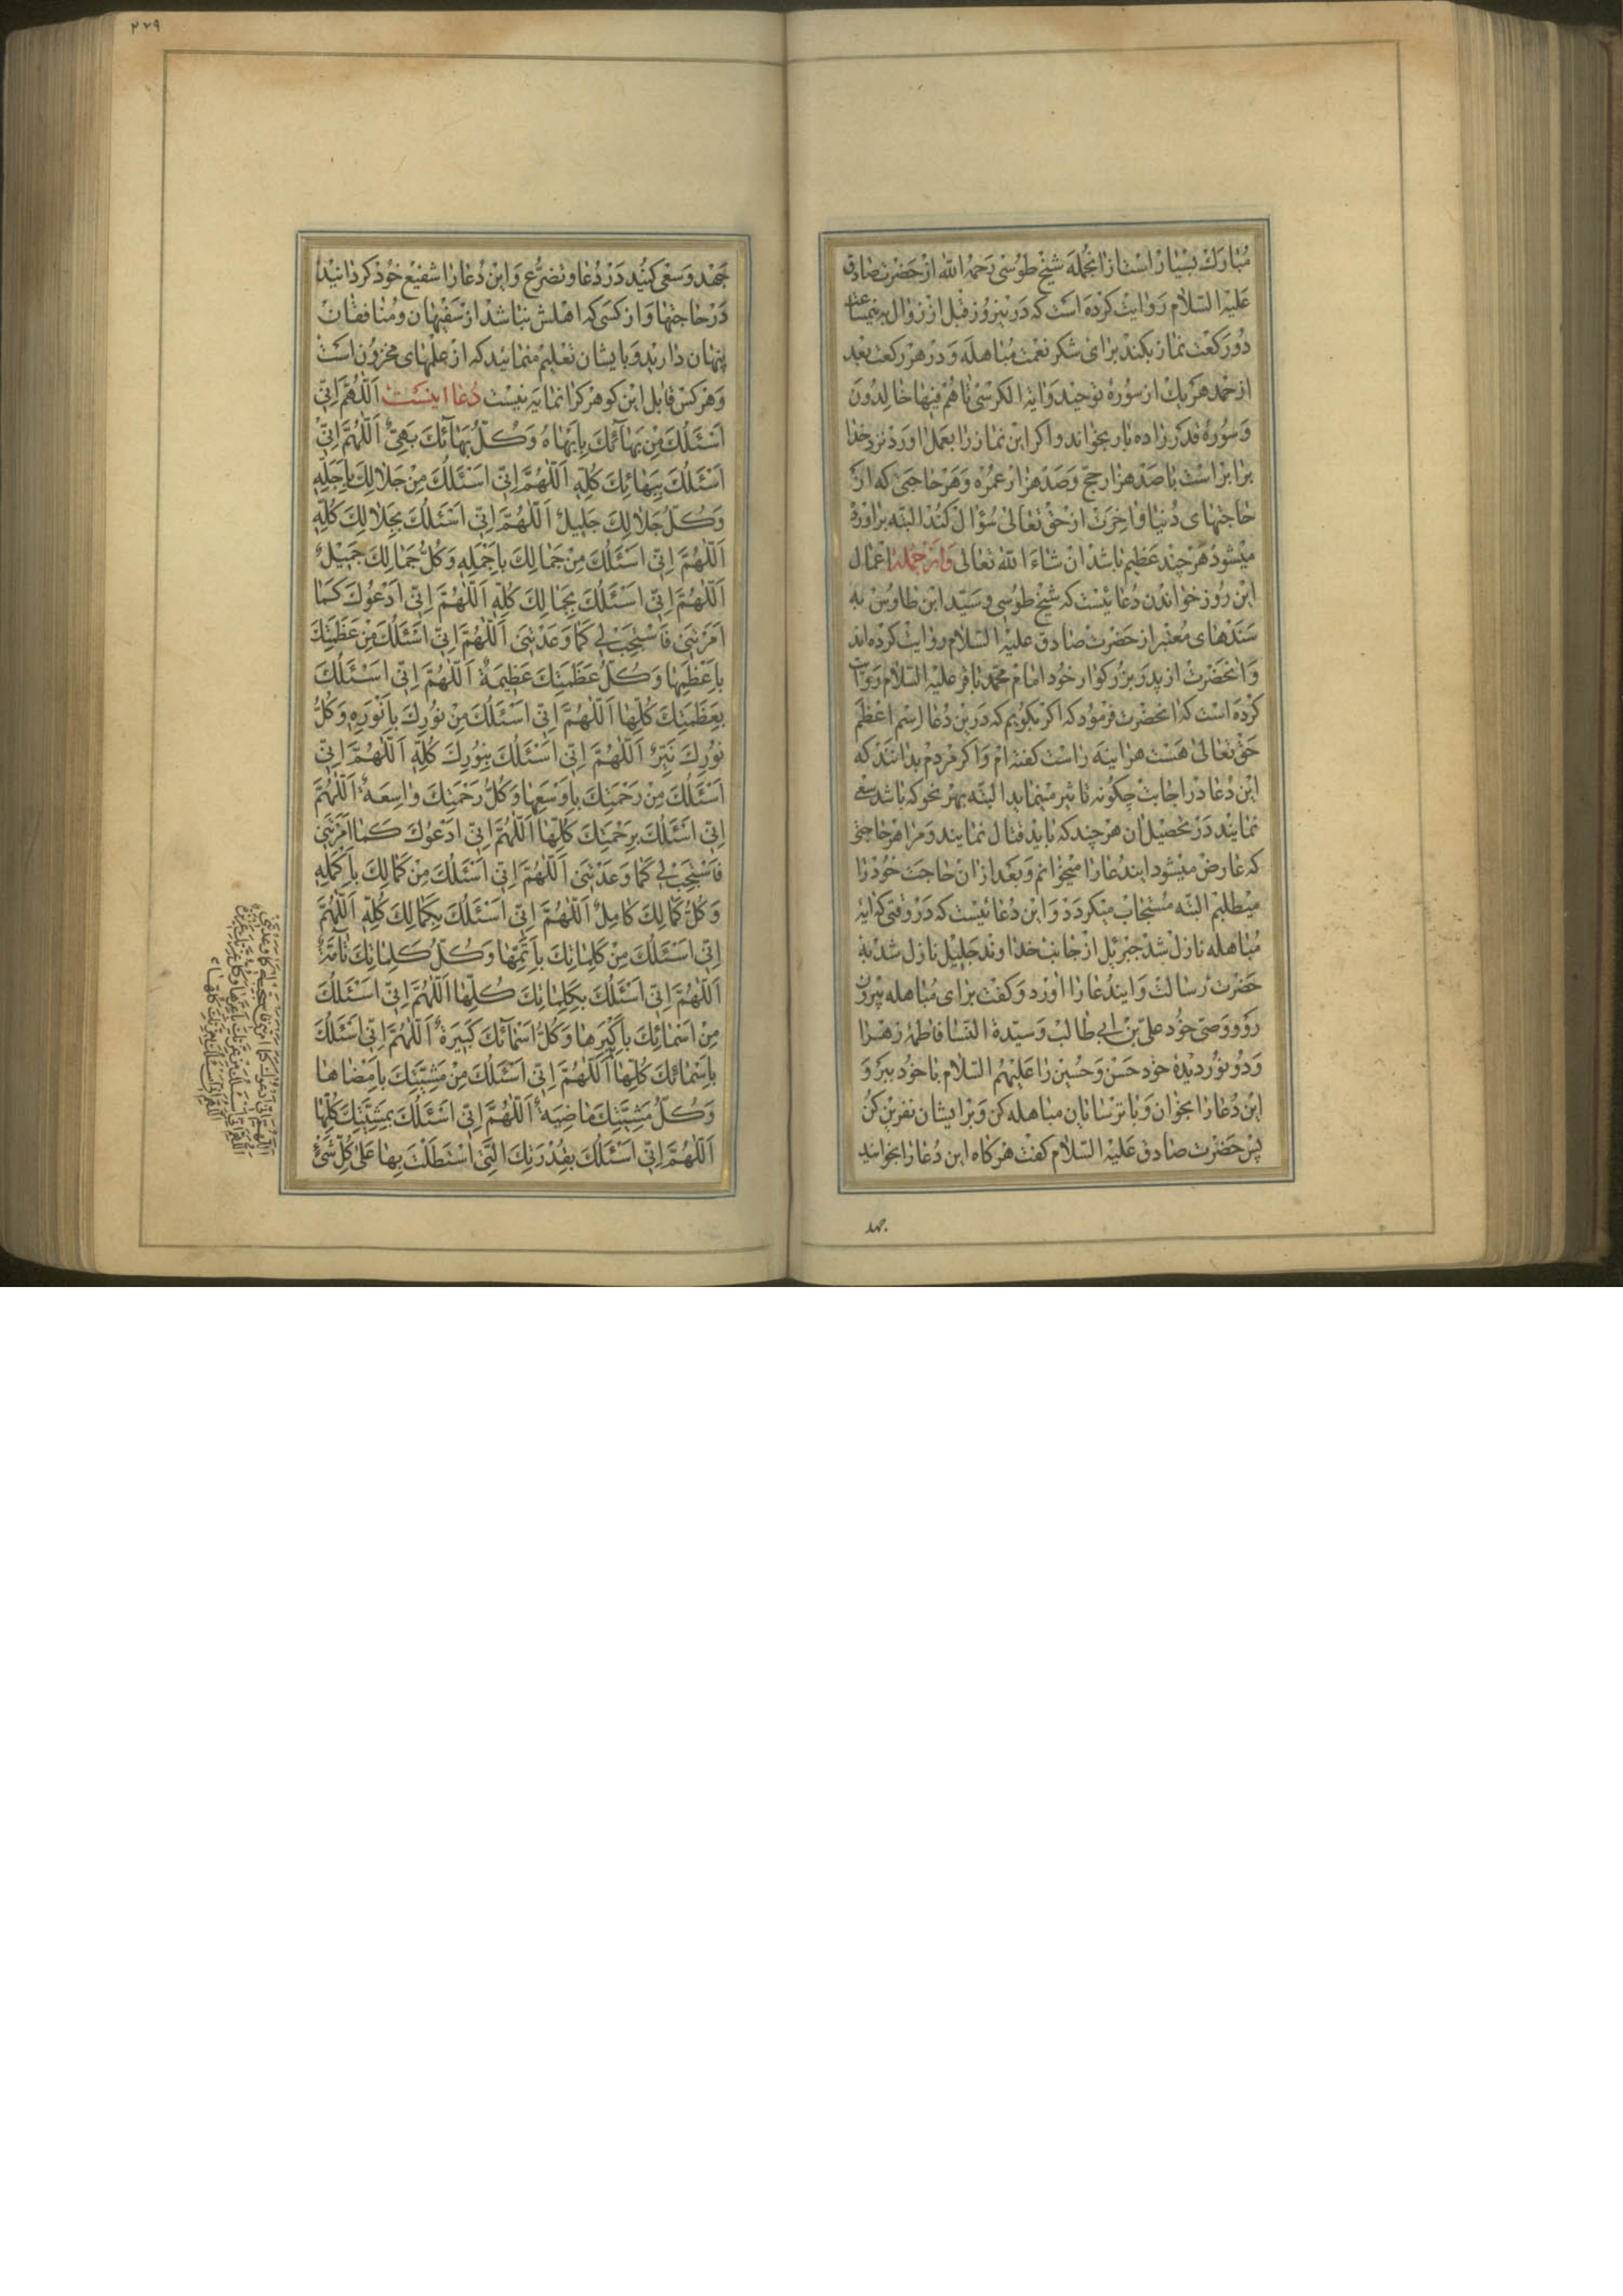 مُبارَك بسْيار است ازانجُملَه شيخ طوُسى رَحِمَهُ اللّه از حَضرت صادق
عَليْه السّلام رَوايت كرْده است كه دَر نيروز قبل از زوال به نيمساعت
دُو ركعت نماز بكند براى شكر نعمت مُباهله وَ در هر ركعت بعْد
از حمد هر يك از سوُره توحيد وَ اية الكرسى تا هُمْ فيها خالِدوُنَ
وَ سوُرهٔ قدر را ده بار بخواند و اكر اين نماز را بعمل اورَد نزد خدا
برابر است با صَد هزار حجّ وَ صَد هزار عمُره وَ هَر حاجتى كه از
حاجتهاى دُنيا و اخِرَت از حق تعالى سُؤال كند البتّه براورده
ميشود هَر چند عَظيم باشد انْ شاءَ اللّه تعالى وَاز جمله اعمال
اين روُز خواندن دُعائيست كه شيخ طوُسى و سَيّد ابن طاوُس به
سَندهاى مُعتبر از حَضرت صادق عليْه السّلام روايت كرده اند
وَ انحَضرت از پدَر بزُركوار خوُد امام محمّد باقر عليْه السّلام روايت
كرْده است كه انحضرت فرموُد كه اكر بكويم كه دَر اين دُعا اسْم اعظم
حَق تعالى هَست هراينه راست كفته ام وَ اكر مَردم بدانند كه
اين دُعا در اجابت چكونه تاثير مينمايد البته بهر نحو كه باشد سعى
نمايند دَر تحصيل ان هر چند كه بايد قتال نمايند وَ مرا هر حاجتى
كه عارض ميشود ايندُعا را ميخوانم وَ بعد از ان حاجت خوُد را
ميطلبم البتّه مُستجاب ميكردد وَ اين دُعائيست كه دَر وقتى كه ايهٔ
مُباهله نازل شد جبرئيل از جانب خداوند جليل نازل شد به
حَضرت رسالت وَ ايندُعا را اورد وَ كفت براى مُباهله بيرون
رو وَ وَصىّ خوُد علىّ بن ابى طالب وَ سيّدة النّسا فاطمهٔ زهرا
وَ دُو نوُر ديدهٔ خود حسَن وَ حُسين را عَليْهمُ السّلام با خوُد ببر وَ
اين دُعا را بخوان وَ با ترسايان مباهله كن وَ بر ايشان نفرين كُن
پس حَضرت صادق عَليْه السّلام كفت هركاه اين دُعا را بخوانيد
جهد
٢٢٩
جَهْد وَ سَعْى كنُيد دَر دُعا و تضرُّع وَ اين دُعا را شفيع خوُد كردانيد
دَر حاجتها وَ از كسَى كه اهلش نباشد از سَفيهان و مُنافقان
پنهان داريد وَ با يشان تعْليم منمائيد كه از علمهاى مخزوُن است
وَ هر كس قابل اين كوهر كرانمايه نيست دُعا اينست اَللّهُمَّ اِنّى
اَسْئَلُكَ مِنْ بَهآئِكَ بِاَبْهاهُ وَ كُلُّ بَهآئِكَ بَهِىٌّ اَللّهُمَّ اِنّى
اَسْئَلُكَ بِبَهائِكَ كُلِّهِ اَللّهُمَّ اِنّى اَسْئَلُكَ مِنْ جَلالِكَ بِاَجَلِّهِ
وَ كُلُّ جَلالِكَ جَليلٌ اَللّهُمَّ اِنّى اَسْئَلُكَ بِجَلالِكَ كُلِّهِ
اَللّهُمَّ اِنّى اَسْئَلُكَ مِنْ جَمالِكَ بِاَجْمَلِهِ وَ كُلُّ جَمالِكَ جَميلٌ
اَللّهُمَّ اِنّى اَسْئَلُكَ بِجَمالِكَ كُلِّهِ اَللّهُمَّ اِنّى اَدْعُوكَ كَما
اَمَرْتَنى فَاسْتَجِبْ لى كَما وَعَدْتَنى اَللّهُمَّ اِنّى اَسْئَلُكَ مِنْ عَظَمَتِكَ
بِاَعْظَمِها وَ كُلُّ عَظَمَتِكَ عَظيمَةٌ اَللّهُمَّ اِنّى اَسْئَلُكَ
بِعَظَمَتِكَ كُلِّها اَللّهُمَّ اِنّى اَسْئَلُكَ مِنْ نُورِكَ بِاَنْوَرِهِ وَ كُلُّ
نُورِكَ نَيِّرٌ اَللّهُمَّ اِنّى اَسْئَلُكَ بِنُورِكَ كُلِّهِ اَللّهُمَّ اِنّى
اَسْئَلُكَ مِنْ رَحْمَتِكَ بِاَوْسَعِها وَ كُلُّ رَحْمَتِكَ واسِعَةٌ اَللّهُمَّ
اِنّى اَسْئَلُكَ بِرَحْمَتِكَ كُلِّها اَللّهُمَّ اِنّى اَدْعُوكَ كَما اَمَرْتَنى
فَاسْتَجِبْ لى كَما وَعَدْتَنى اَللّهُمَّ اِنّى اَسْئَلُكَ مِنْ كَمالِكَ بِاَكْمَلِهِ
وَ كُلُّ كَمالِكَ كامِلٌ اَللّهُمَّ اِنّى اَسْئَلُكَ بِكَمالِكَ كُلِّهِ اَللّهُمَّ
اِنّى اَسْئَلُكَ مِنْ كَلِماتِكَ بِاَتَمِّها وَ كُلُّ كَلِماتِكَ تآمَّةٌ
اَللّهُمَّ اِنّى اَسْئَلُكَ بِكَلِماتِكَ كُلِّها اَللّهُمَّ اِنّى اَسْئَلُكَ
مِنْ اَسْمائِكَ بِاَكْبَرِها وَ كُلُّ اَسْمآئِكَ كَبيرَةٌ اَللّهُمَّ اِنّى اَسْئَلُكَ
بِاَسْمائِكَ كُلِّها اَللّهُمَّ اِنّى اَسْئَلُكَ مِنْ مَشِيَّتِكَ بِاَمْضاها
وَ كُلُّ مَشِيَّتِكَ ماضِيَةٌ اَللّهُمَّ اِنّى اَسْئَلُكَ بِمَشِيَّتِكَ كُلِّها
اَللّهُمَّ اِنّى اَسْئَلُكَ بِقُدْرَتِكَ الَّتى اسْتَطَلْتَ بِها عَلى كُلِّ شَىْءٍ
اللّهم انى ادعوك كما امرتنى فاستجب لى كما وعدتنى
اللّهم انى اسئلك من عزتك باعزها وكل عزتك عزيزة
اللّهم انى اسئلك بعزتك كلها